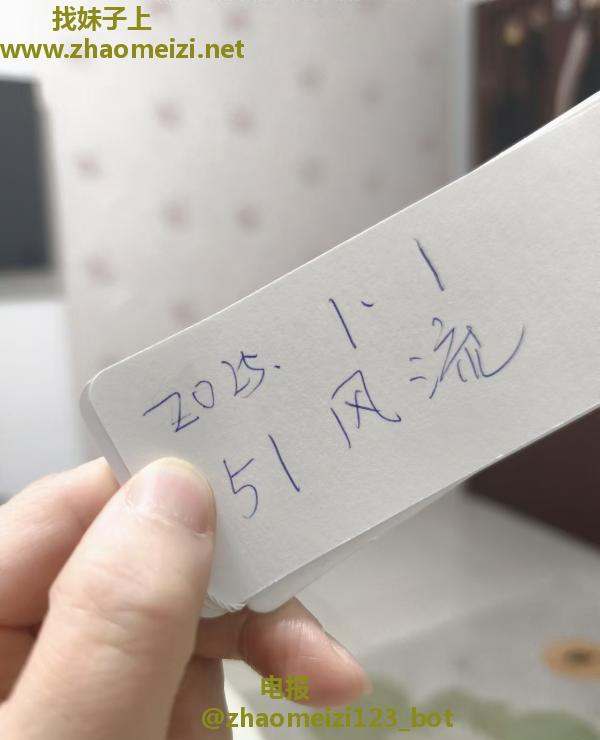 找妹子上
www.zhaomeizi.net
2025. 1. 1
51 风流
电报
@zhaomeizi123_bot